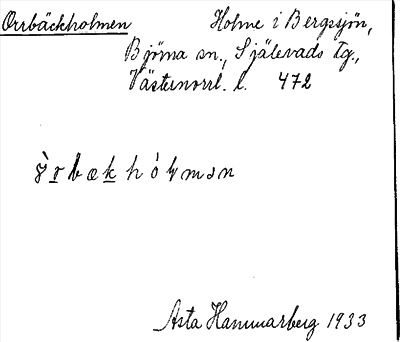 Orrbäckholmen Holme i Bergsjön,
Björna sn., Själevads tg.,
Västernorrl. l. 472
Asta Hammarberg 1933